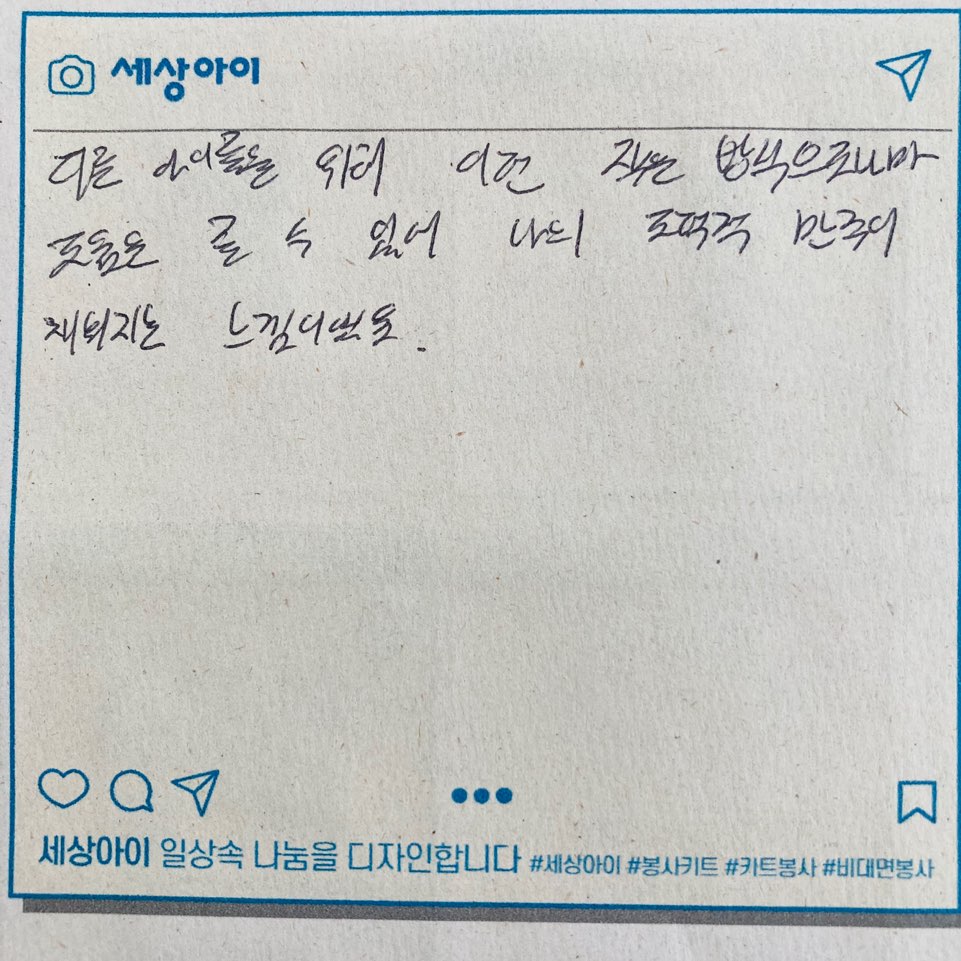 세상아이
다른 아이들을 위해 이런 작은 방식으로나마
도움을 줄 수 있어 나의 도덕적 만족이
채워지는 느낌이었음.
세상아이 일상속 나눔을 디자인합니다 #세상아이 #봉사키트 #카트봉사 #비대면봉사